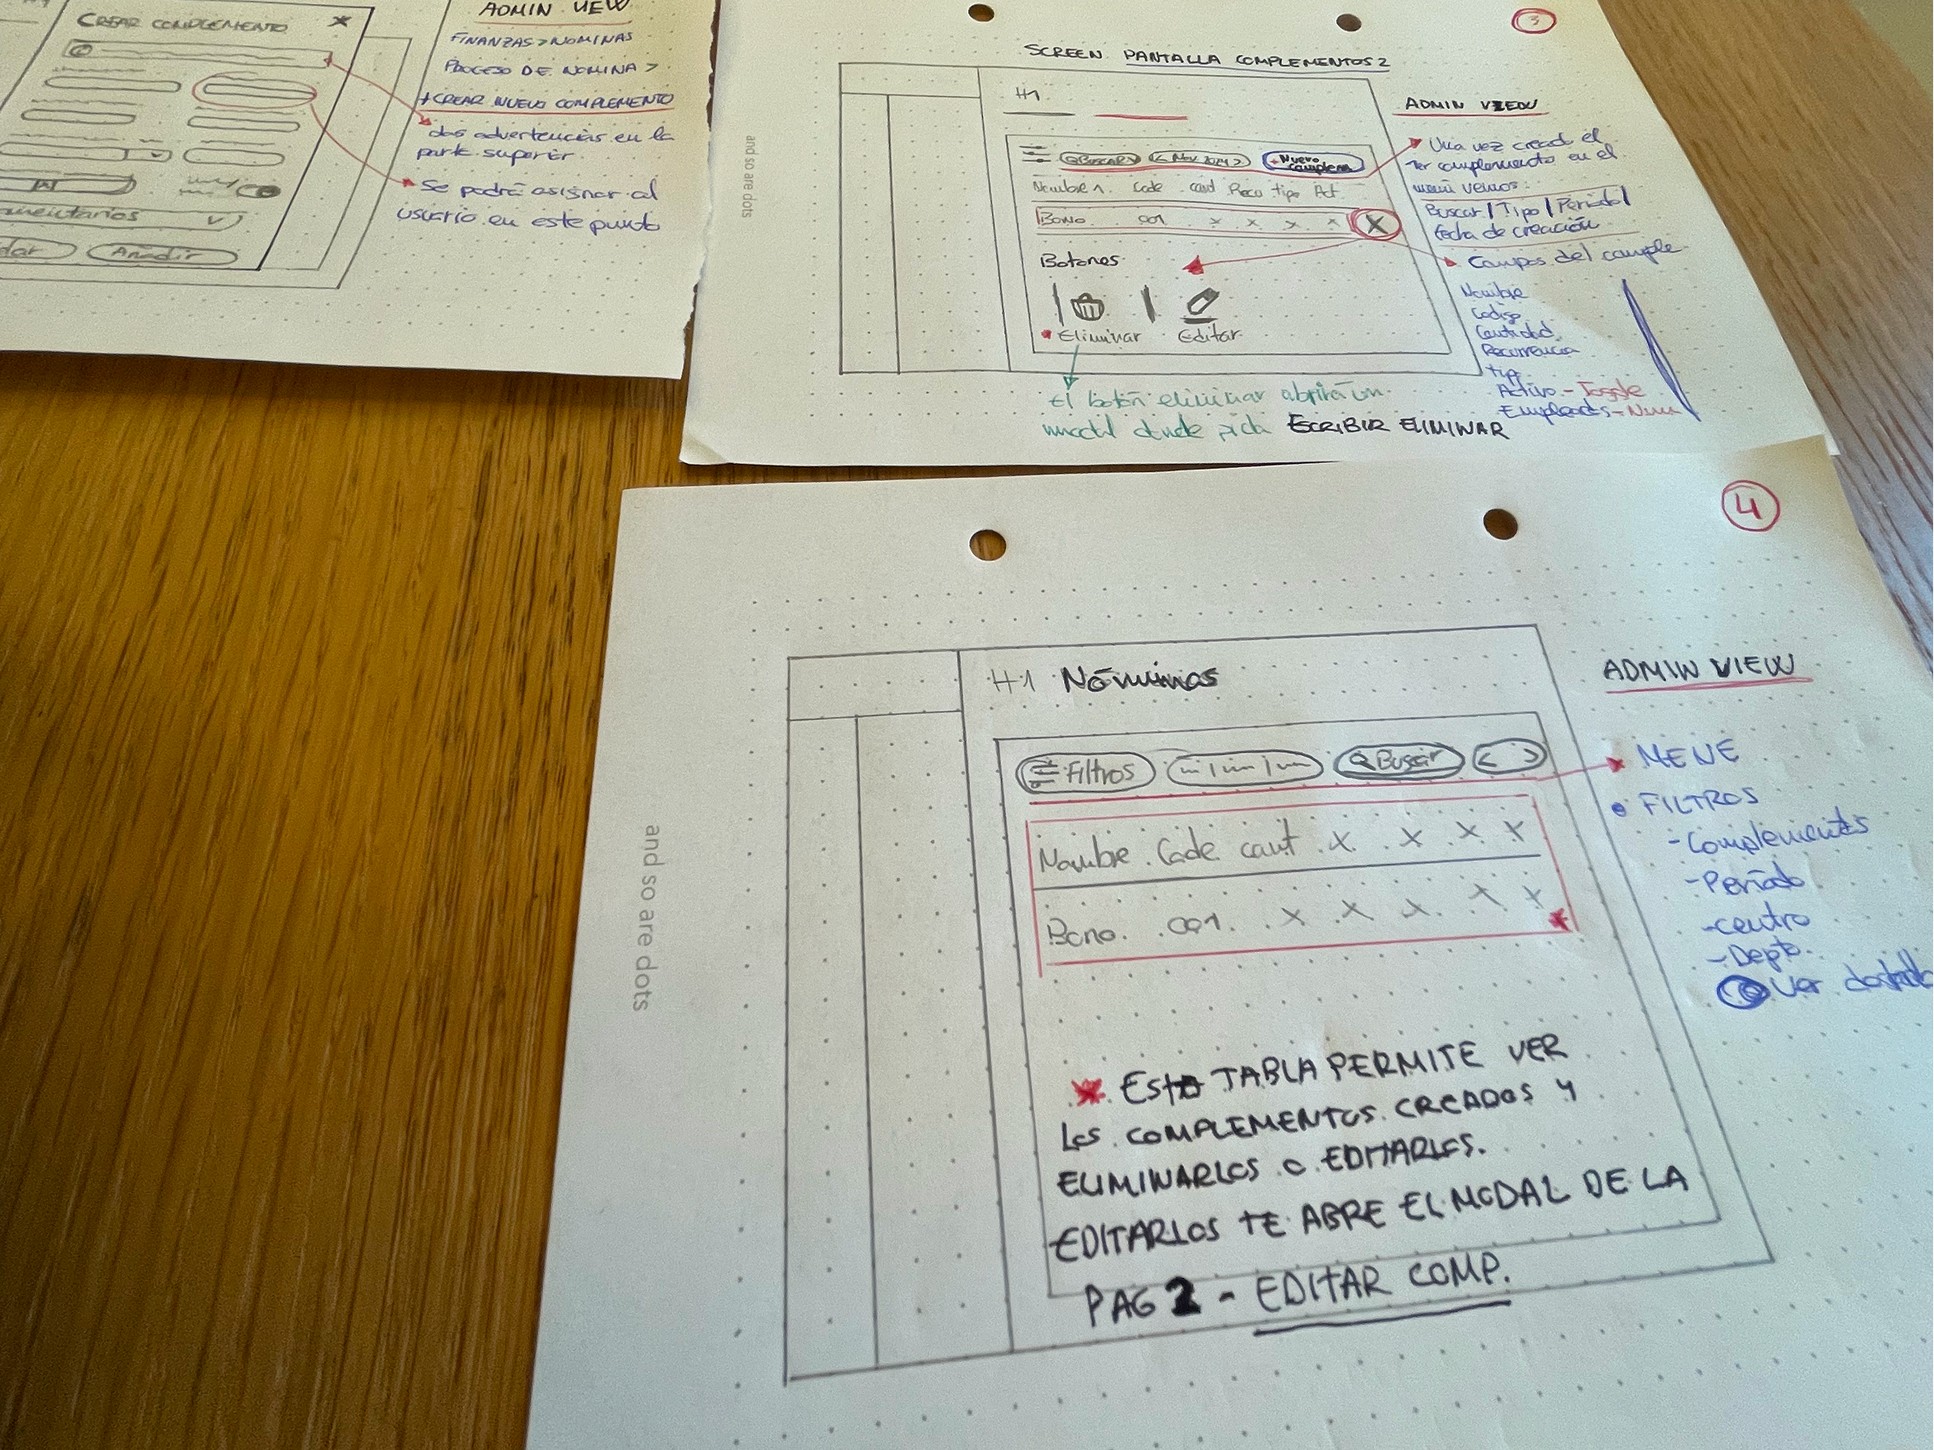 CREAR COMPLEMENTO
Añadir
ADMIN VIEW
FINANZAS > NOMINAS
PROCESO DE NOMINA >
+ CREAR NUEVO COMPLEMENTO
dos advertencias en la
parte superior
Se podrá asignar al
usuario en este punto
3
SCREEN PANTALLA COMPLEMENTOS 2
and so are dots
H1
BUSCAR
< Nov. 2024 >
+ Nuevo
complem
Nombre Code cant Recu tipo Act
Bono 001 x x x x X
Botones
Eliminar Editar
El botón eliminar abrirá un
modal donde pida ESCRIBIR ELIMINAR
ADMIN VIEW
Una vez creado el
1er complemento en el
menú vemos:
Buscar / Tipo / Periodo /
fecha de creación
Campos del comple
Nombre
Codigo
Cantidad
Recurrencia
tipo
Activo - Toggle
Empleados - Num
4
and so are dots
H1 Nóminas
Filtros
Buscar
< >
Nombre Code cant x x x x
Bono 001 x x x x x
* ESTA TABLA PERMITE VER
LOS COMPLEMENTOS CREADOS Y
ELIMINARLOS O EDITARLOS.
EDITARLOS TE ABRE EL MODAL DE LA
PAG 2 - EDITAR COMP.
ADMIN VIEW
MENE
• FILTROS
- Complementos
- Periodo
- centro
- Depto.
Ver